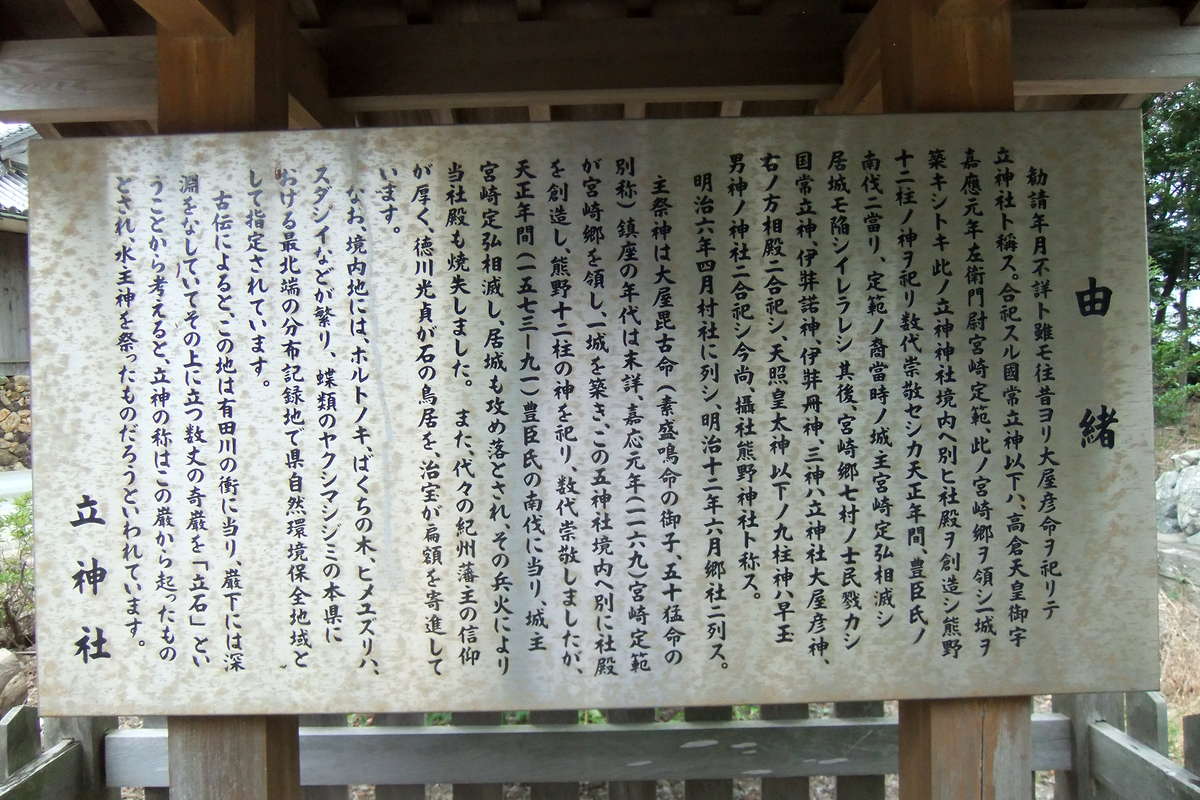 由緒
勧請年月不詳ト雖モ往昔ヨリ大屋彦命ヲ祀リテ
立神社ト稱ス。合祀スル國常立神以下ハ、高倉天皇御宇
嘉應元年左衛門尉宮崎定範、此ノ宮崎郷ヲ領シ一城ヲ
築キシトキ此ノ立神神社境内ヘ別ヒ社殿ヲ創造シ熊野
十二柱ノ神ヲ祀リ数代崇敬セシカ天正年間、豊臣氏ノ
南伐ニ當リ、定範ノ裔當時ノ城主宮崎定弘相滅シ
居城モ陥シイレラレシ其後、宮崎郷七村ノ士民戮カシ
国常立神、伊弉諾神、伊弉冊神、三神ハ立神社大屋彦神、
右ノ方相殿二合祀シ、天照皇太神以下ノ九柱神ハ早玉
男神ノ神社二合祀シ今尚、攝社熊野神社ト称ス。
明治六年四月村社に列シ、明治十二年六月郷社ニ列ス。
主祭神は大屋毘古命(素盛鳴命の御子、五十猛命の
別称)鎮座の年代は末詳、嘉応元年(一一六九)宮崎定範
が宮崎郷を領し、一城を築き、この五神社境内へ別に社殿
を創造し、熊野十二柱の神を祀り、数代崇敬しましたが、
天正年間(一五七三ー九一)豊臣氏の南伐に当り、城主
宮崎定弘相滅し、居城も攻め落とされ、その兵火により
当社殿も焼失しました。また、代々の紀州藩主の信仰
が厚く、徳川光貞が石の鳥居を、治宝が扁額を寄進して
います。
なお、境内地には、ホルトノキ、ばくちの木、ヒメユズリハ、
スダジイなどが繁り、蝶も類のヤクシマシジミの本県に
おける最北端の分布記録地で県自然環境保全地域と
して指定されています。
古伝によると、この地は有田川の衝に当り、巌下には深
淵をなしていてその上に立つ数丈の奇巌を「立石」とい
うことから考えると、立神の称はこの巌から起ったもの
とされ、水主神を祭ったものだろうといわれています。
立神社